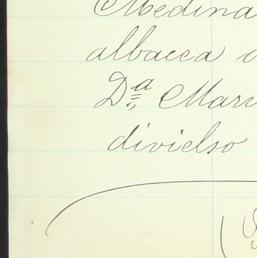 Medina
albacea
Dª Mar
divielso